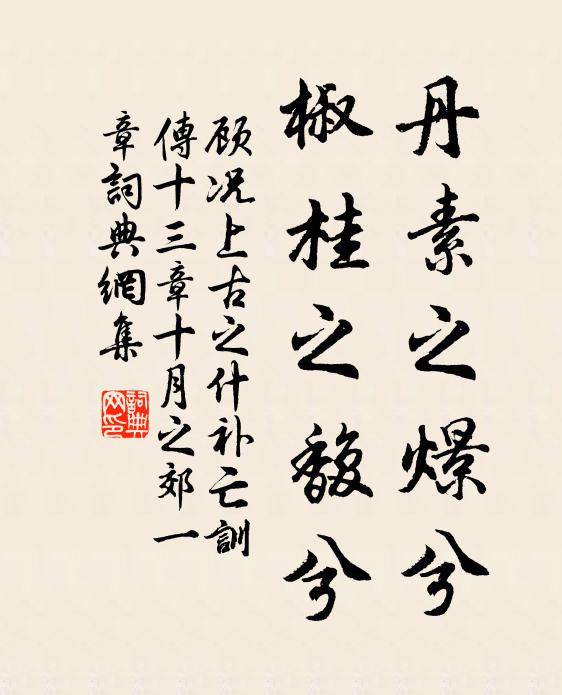 丹素之爆兮
椒桂之馥兮
顾况上古之什补亡訓
傳十三章十月之郊一
章詞典網集
詞典
网印